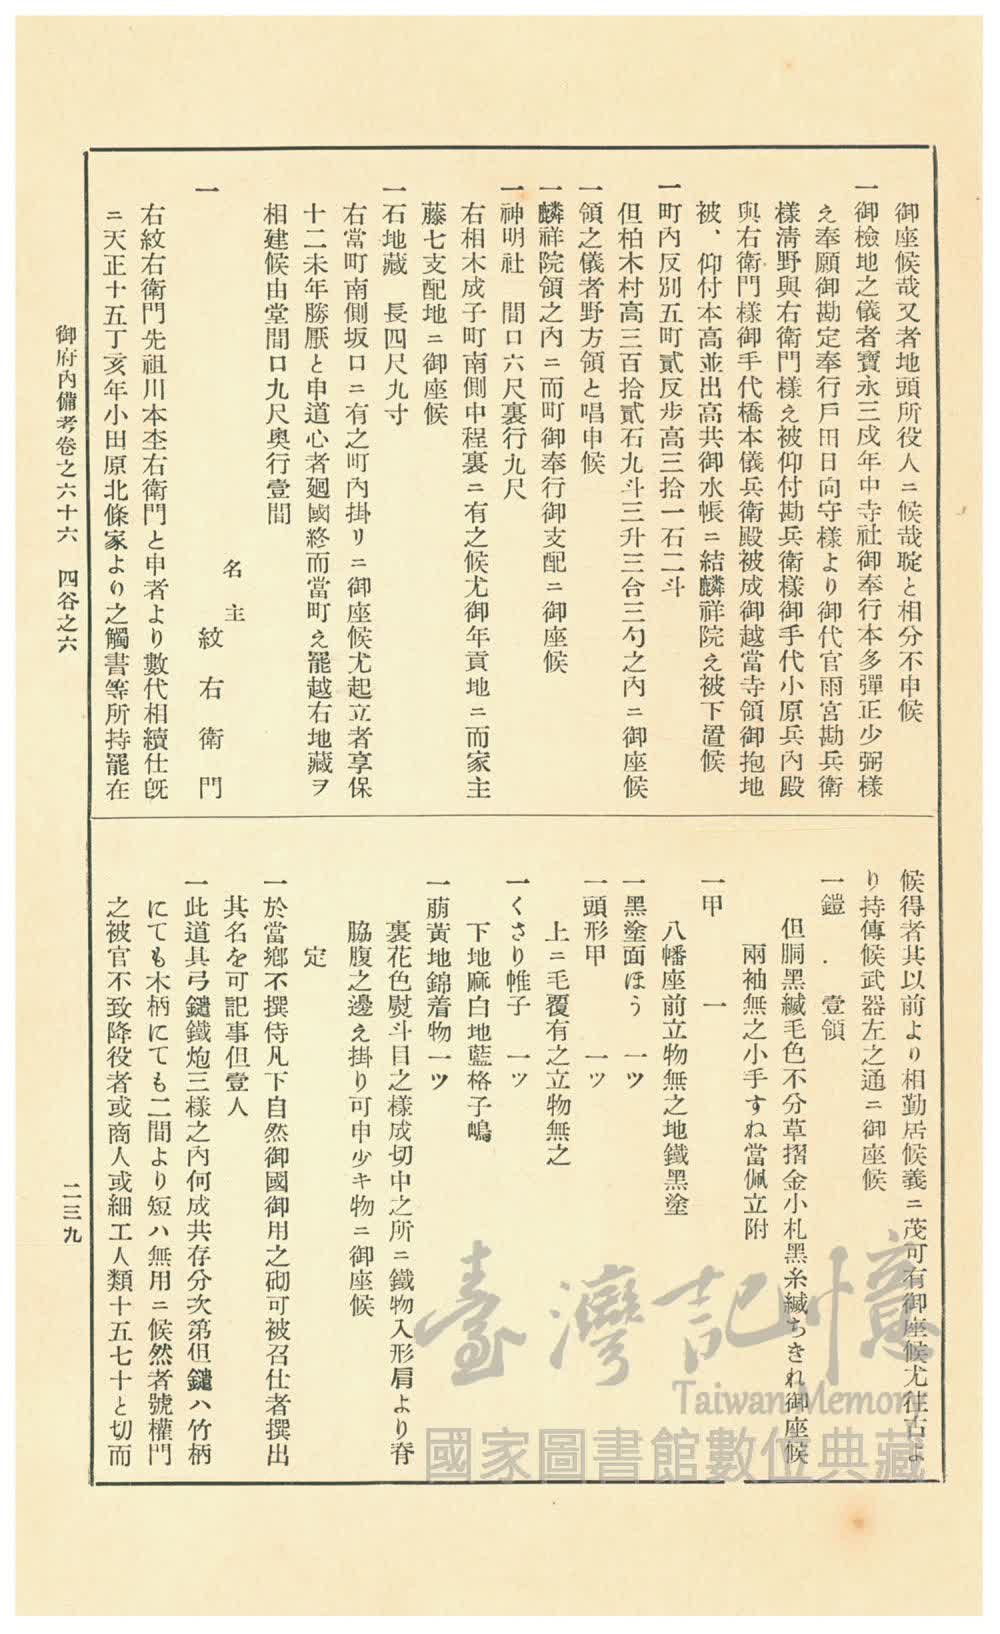 御座候哉又者地頭所役人ニ候哉聢と相分不申候
一御檢地之儀者寶永三戌年中寺社御奉行本多彈正少弼樣
え奉願御勘定奉行戶田日向守樣より御代官雨宮勘兵衛
樣淸野與右衛門樣え被仰付勘兵衛樣御手代小原兵內殿
與右衛門樣御手代橋本儀兵衛殿被成御越當寺領御抱地
被、仰付本高並出高共御水帳ニ結麟祥院え被下置候
一町內反別五町貳反步高三拾一石二斗
但柏木村高三百拾貳石九斗三升三合三勺之內ニ御座候
一領之儀者野方領と唱申候
一麟祥院領之內ニ而町御奉行御支配ニ御座候
一神明社　間口六尺裏行九尺
右相木成子町南側中程裏ニ有之候尤御年貢地ニ而家主
藤七支配地ニ御座候
一石地藏　長四尺九寸
右當町南側坂口ニ有之町內掛リニ御座候尤起立者享保
十二未年勝厭と申道心者廻國終而當町え罷越右地藏ヲ
相建候由堂間口九尺奧行壹間
名主
一　紋右衛門
右紋右衛門先祖川本杢右衛門と申者より數代相續仕旣
ニ天正十五丁亥年小田原北條家より之觸書等所持罷在
候得者其以前より相勤居候義ニ茂可有御座候尤往古よ
り持傳候武器左之通ニ御座候
一鎧　壹領
但胴黑縅毛色不分草摺金小札黑糸縅ちきれ御座候
兩袖無之小手すね當佩立附
一甲　一
八幡座前立物無之地鐵黑塗
一黑塗面ほう　一ツ
一頭形甲　一ツ
上ニ毛覆有之立物無之
一くさり帷子　一ツ
下地麻白地藍格子嶋
一萠黃地錦着物一ツ
裏花色熨斗目之樣成切中之所ニ鐵物入形肩より脊
脇腹之邊え掛り可申少キ物ニ御座候
定
一於當鄕不撰侍凡下自然御國御用之砌可被召仕者撰出
其名を可記事但壹人
一此道具弓鑓鐵炮三樣之內何成共存分次第但鑓ハ竹柄
にても木柄にても二間より短ハ無用ニ候然者號權門
之被官不致陣役者或商人或細工人類十五七十と切而
御府內備考卷之六十六　四谷之六
二三九
臺灣記憶
Taiwan Memory
國家圖書館數位典藏